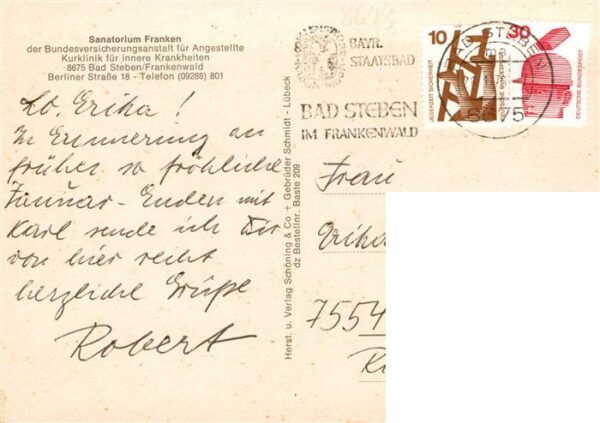 Sanatorium Franken
der Bundesversicherungsanstalt für Angestellte
Kurklinik für innere Krankheiten
8675 Bad Steben/Frankenwald
Berliner Straße 18 - Telefon (09288) 801
Lb. Erika!
In Erinnerung an
früher so fröhliche
Januar-Enden mit
Karl sende ich Dir
von hier recht
herzliche Grüße
Robert
Herst. u. Verlag Schöning & Co + Gebrüder Schmidt - Lübeck
dz Bestellnr. Baste 209
BAYR.
STAATSBAD
BAD STEBEN
IM FRANKENWALD
BAD STEBEN
8675
10
JEDERZEIT SICHERHEIT
DEUTSCHE BUNDESPOST
30
DEUTSCHE BUNDESPOST
Frau
Erika
7554